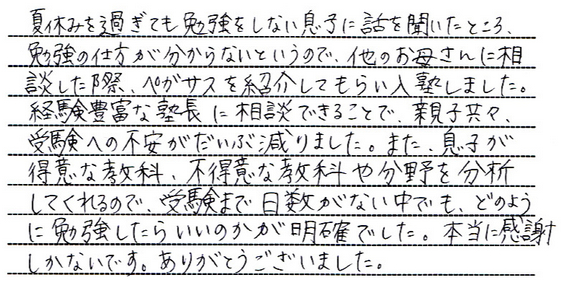 夏休みを過ぎても勉強をしない息子に話を聞いたところ、
勉強の仕方が分からないというので、他のお母さんに相
談した際、ペガサスを紹介してもらい入塾しました。
経験豊富な塾長に相談できることで、親子共々、
受験への不安がだいぶ減りました。また、息子が
得意な教科、不得意な教科や分野を分析
してくれるので、受験まで日数がない中でも、どのよう
に勉強したらいいのかが明確でした。本当に感謝
しかないです。ありがとうございました。